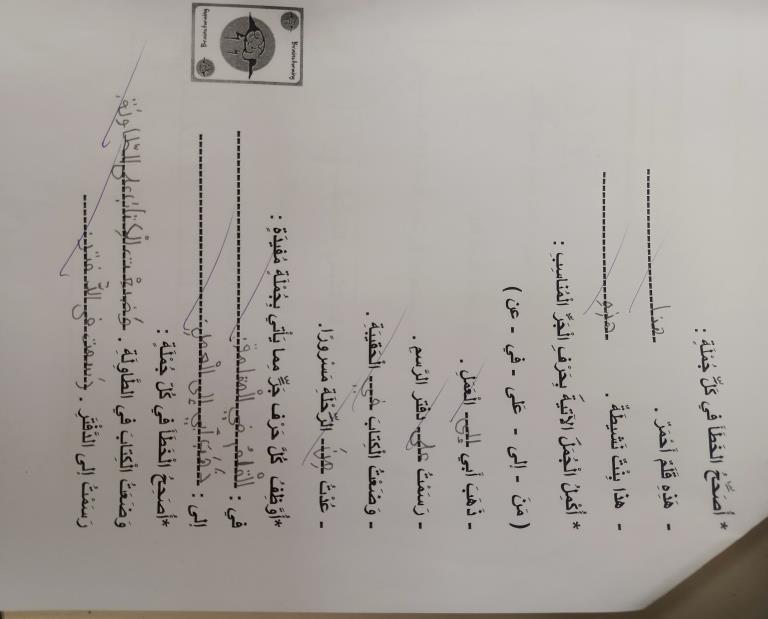 * أُصَحِّحُ الخَطَأَ في كلِّ جُمْلَةٍ :
- هَذِهِ قَلَمٌ أَحْمَرٌ . هذا
- هذا بِنْتٌ نَشيطَةٌ . هذه
* أُكْمِلُ الْجُمَلَ الآتيةَ بِحَرْفِ الْجَرِّ الْمُناسِبِ :
( مَنَ - إلى - عَلى - في - عن )
- ذَهَبَ أبي إلى الْعَمَلِ .
- رَسَمْتُ على دَفْتَرِ الرَّسمِ .
- وَضَعْتُ الْكِتابَ في الْحَقيبَةِ .
- عُدْتُ مِنَ الرِّحْلَةِ مَسْرورًا.
*أُوَظِّفُ كُلَّ حَرْفِ جَرٍّ مما يَأتي بِجُمْلَةٍ مُفيدَةٍ :
في : القلم في المقلمة
إلى : ذهب أبي إلى العمل
*أُصَحِّحُ الْخَطَأَ في كُلِّ جُمْلَةٍ :
وَضَعْتُ الْكِتابَ في الطَّاوِلَةِ . وَضَعْتُ الْكِتابَ على الطَّاوِلَةِ
رَسَمْتُ إلى الدَّفْتَرِ . رَسَمْتُ في الدَّفْتَرِ
Brainstorming
Brainstorming